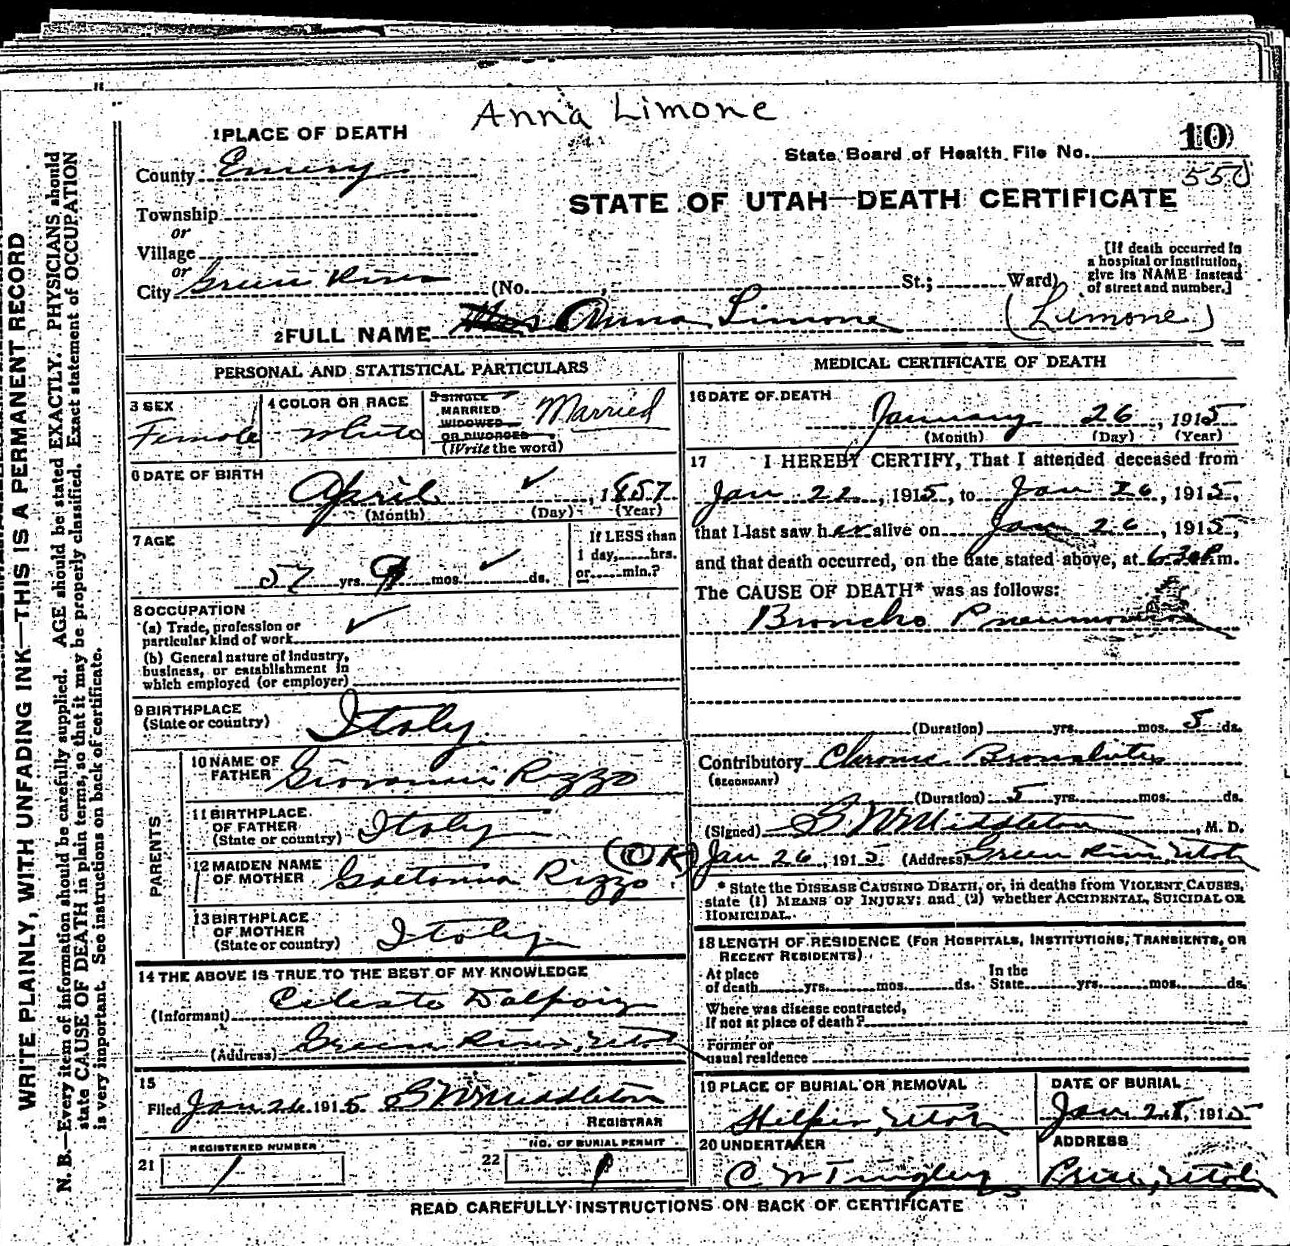 Anna Limone
1 PLACE OF DEATH
10
State Board of Health File No.
550
County Emery
STATE OF UTAH—DEATH CERTIFICATE
Township
or
Village
or
City Green River (No. St.; Ward)
[If death occurred in a hospital or institution, give its NAME instead of street and number.]
2 FULL NAME Mrs Anna Simone (Limone)
PERSONAL AND STATISTICAL PARTICULARS
3 SEX
Female
4 COLOR OR RACE
White
5 SINGLE
MARRIED
WIDOWED
OR DIVORCED
(Write the word)
Married
6 DATE OF BIRTH
April ✓, 1857
(Month) (Day) (Year)
7 AGE
57 yrs. 9 mos. ✓ ds.
If LESS than
1 day, hrs.
or min.?
8 OCCUPATION
(a) Trade, profession or
particular kind of work ✓
(b) General nature of industry,
business, or establishment in
which employed (or employer)
9 BIRTHPLACE
(State or country) Italy
PARENTS
10 NAME OF
FATHER Giovanni Rizzo
11 BIRTHPLACE
OF FATHER
(State or country) Italy
12 MAIDEN NAME
OF MOTHER Gaetanina Rizzo (OK)
13 BIRTHPLACE
OF MOTHER
(State or country) Italy
14 THE ABOVE IS TRUE TO THE BEST OF MY KNOWLEDGE
(Informant) Celesto Dalpoiz
(Address) Green River, Utah
15
Filed Jan 26 1915 S W Middleton
REGISTRAR
REGISTERED NUMBER
21 1
NO. OF BURIAL PERMIT
22 1
MEDICAL CERTIFICATE OF DEATH
16 DATE OF DEATH
January 26, 1915
(Month) (Day) (Year)
17 I HEREBY CERTIFY, That I attended deceased from
Jan 22, 1915, to Jan 26, 1915,
that I last saw her alive on Jan 26, 1915,
and that death occurred, on the date stated above, at 6.30 P m.
The CAUSE OF DEATH* was as follows:
Broncho Pneumonia
(Duration) yrs. mos. 5 ds.
Contributory Chronic Bronchitis
(SECONDARY)
(Duration) 5 yrs. mos. ds.
(Signed) S W Middleton, M. D.
Jan 26, 1915 (Address) Green River, Utah
* State the DISEASE CAUSING DEATH, or, in deaths from VIOLENT CAUSES,
state (1) MEANS OF INJURY; and (2) whether ACCIDENTAL, SUICIDAL OR
HOMICIDAL.
18 LENGTH OF RESIDENCE (FOR HOSPITALS, INSTITUTIONS, TRANSIENTS, OR
RECENT RESIDENTS)
At place In the
of death yrs. mos. ds. State yrs. mos. ds.
Where was disease contracted,
If not at place of death?
Former or
usual residence
19 PLACE OF BURIAL OR REMOVAL
Helper, Utah
DATE OF BURIAL
Jan 28, 1915
20 UNDERTAKER
C W Tingley
ADDRESS
Price, Utah
READ CAREFULLY INSTRUCTIONS ON BACK OF CERTIFICATE
WRITE PLAINLY, WITH UNFADING INK—THIS IS A PERMANENT RECORD
N. B.—Every item of information should be carefully supplied. AGE should be stated EXACTLY. PHYSICIANS should
state CAUSE OF DEATH in plain terms, so that it may be properly classified. Exact statement of OCCUPATION
is very important. See instructions on back of certificate.